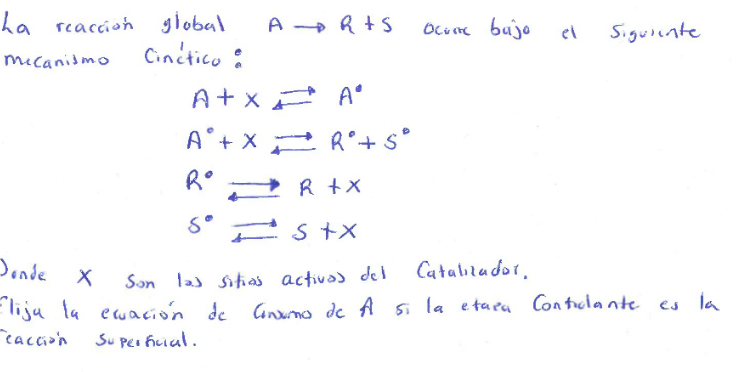 La reacción global A → R + S ocurre bajo el siguiente
mecanismo Cinético :
A + x ⇄ A°
A° + x ⇄ R° + S°
R° ⇄ R + X
S° ⇄ S + X
Donde X son los sitios activos del Catalizador.
Elija la ecuación de Consumo de A si la etapa Controlante es la
reacción superficial.